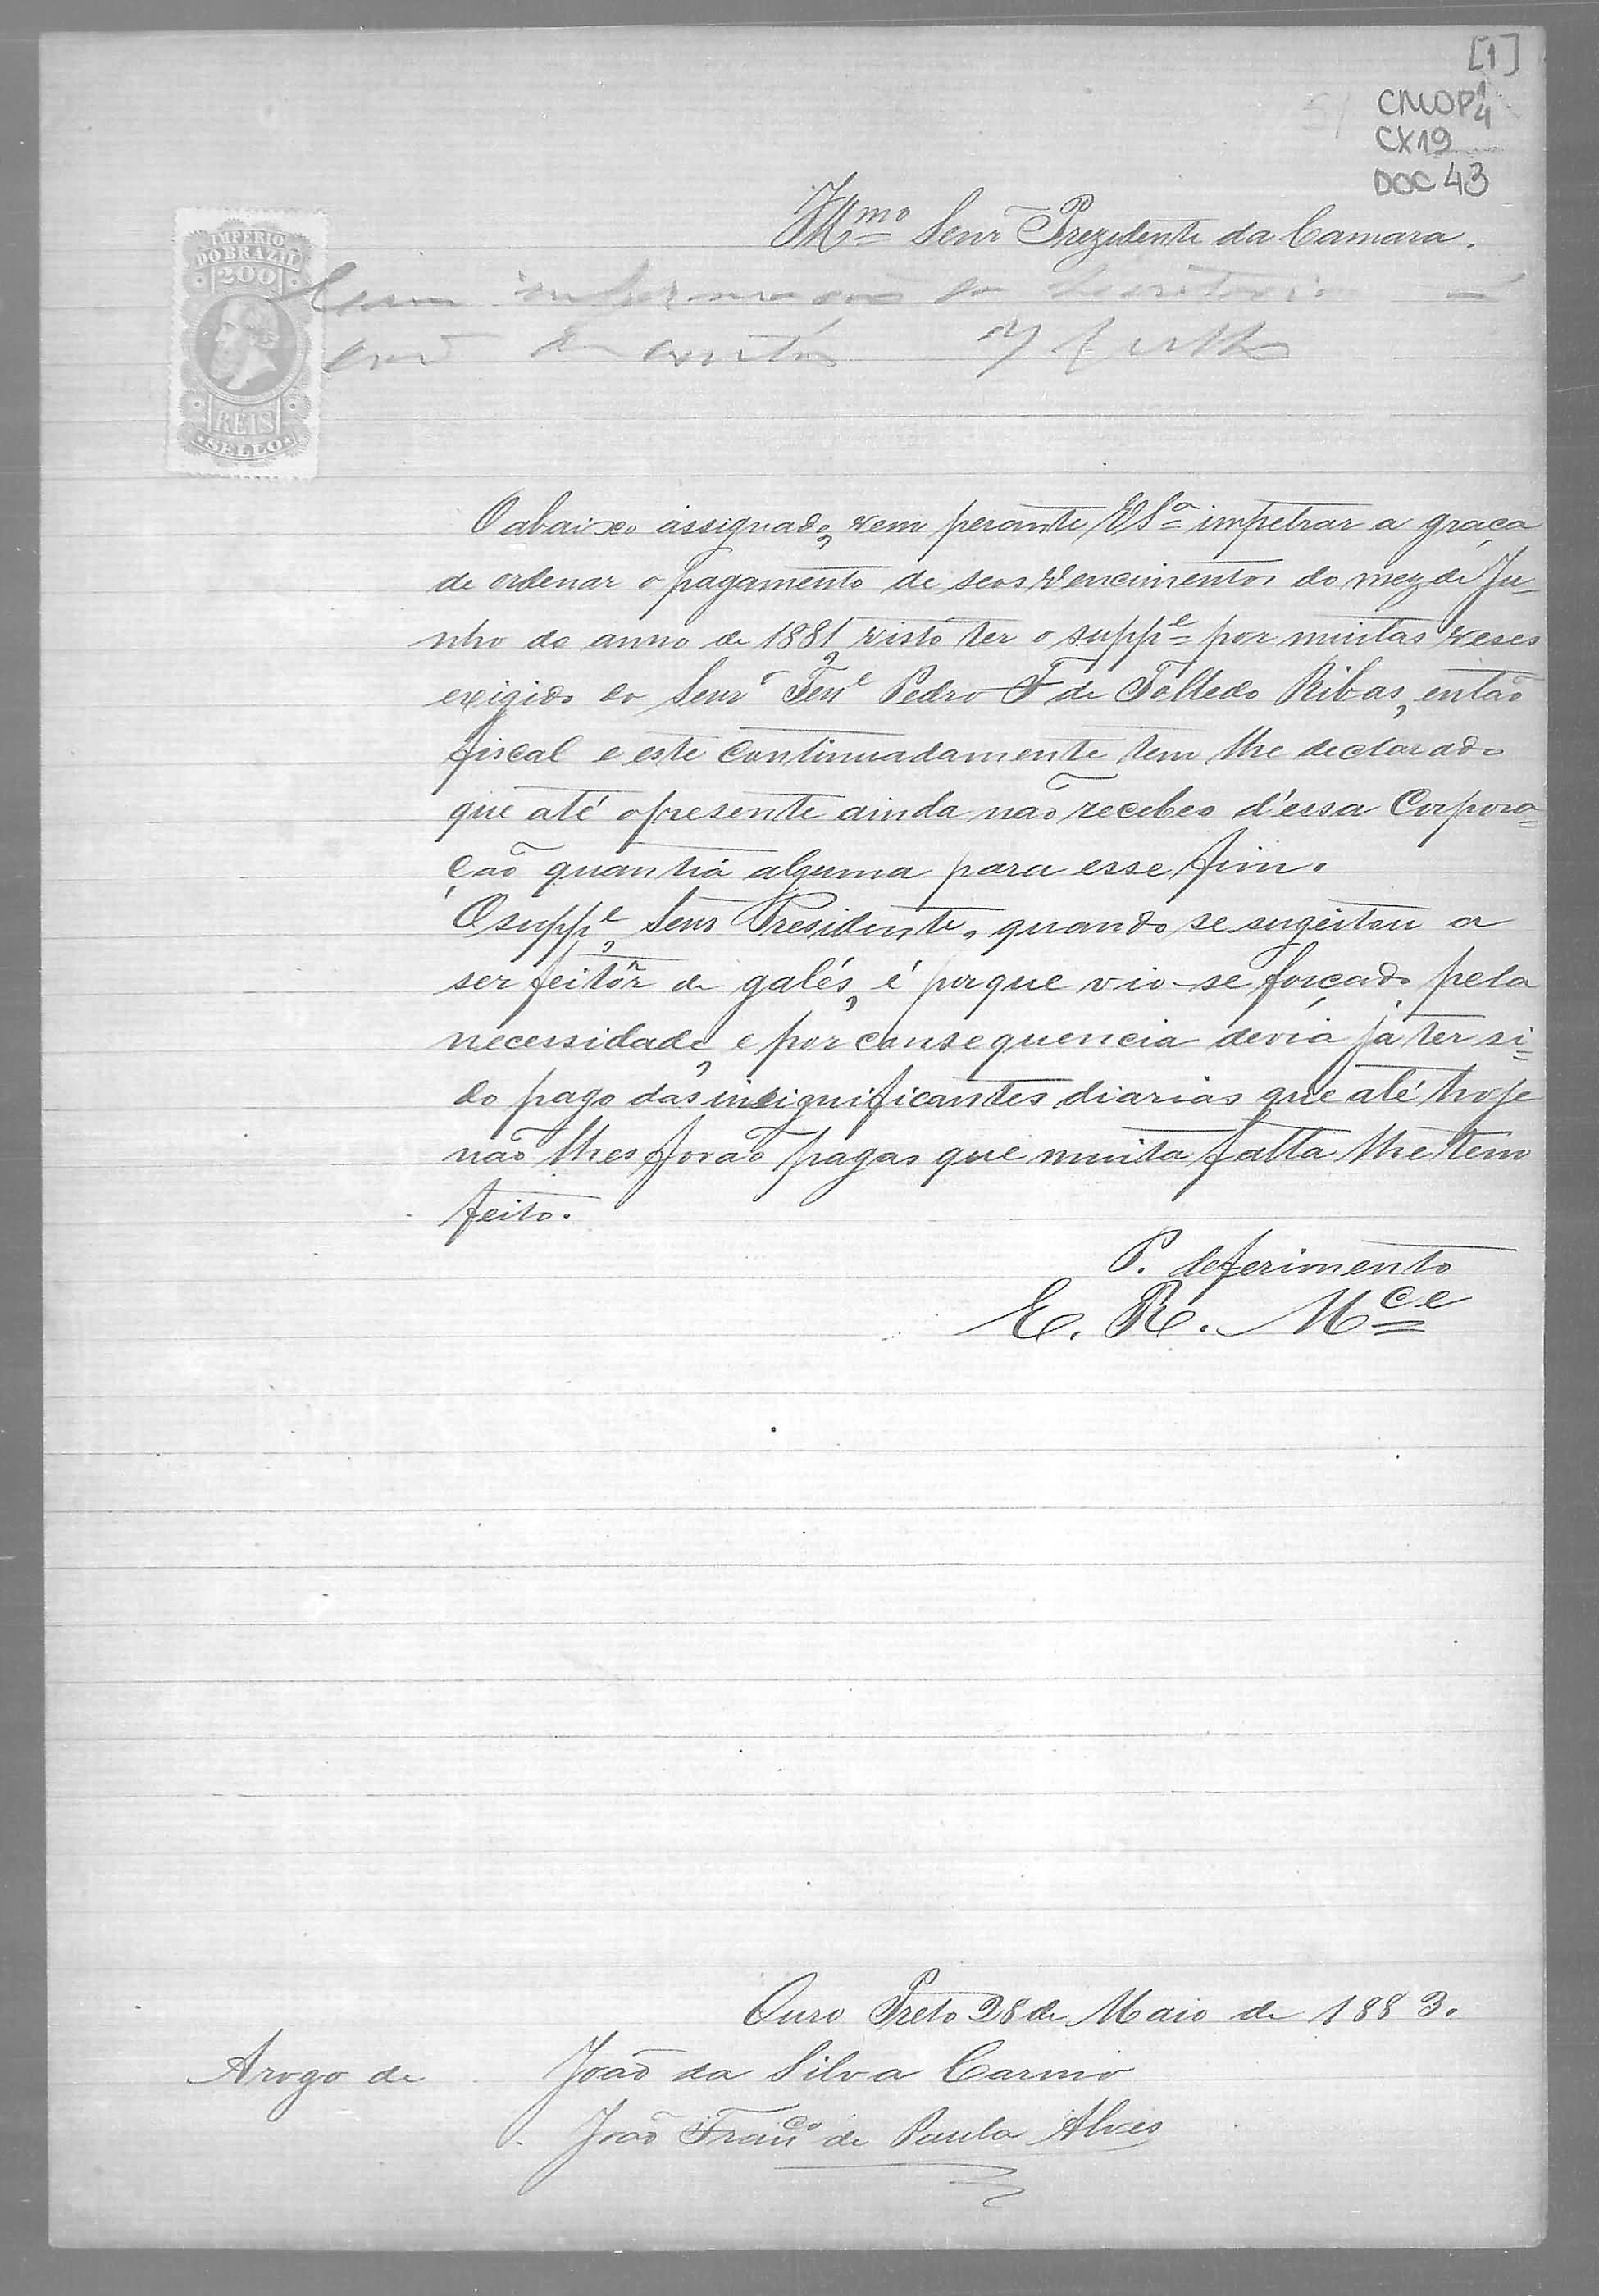 [1]
CMOP 1/4
CX19
DOC 43
Illmo Senr Prezidente da Camara.
IMPERIO
DO BRAZIL
200
REIS
SELLO
Com informação do Secretario
O abaixo assignado, vem perante VSa impetrar a graça
de ordenar o pagamento de seos Vencimentos do mez de Ju-
nho do anno de 1881, visto ter o suppe por muitas veses
exigido do Senr Tene Pedro F de Tolledo Ribas, então
fiscal e este continuadamente tem lhe declarado
que até o presente ainda não recebeo d'essa Corpora=
ção quantia alguma para esse fim.
O suppe, Senr Presidente, quando se sugeitou a
ser feitôr de galés, é porque vio-se forçado pela
necessidade, e por consequencia devia já ter si=
do pago das insignificantes diarias que até hoje
não lhes forão pagas que muita falta lhe tem
feito.
P. deferimento
E. R. Mce
Ouro Preto 28 de Maio de 1883.
Arogo de João da Silva Carmo
João Franco de Paula Alves